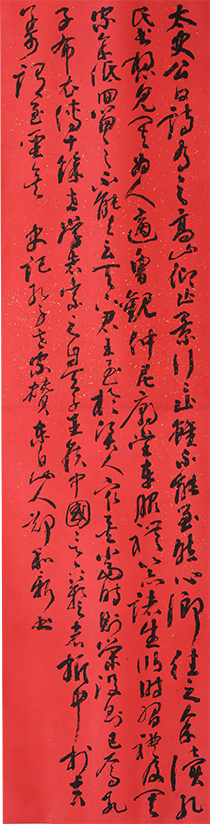 太史公曰詩有之高山仰止景行行止雖不能至然心鄉往之余讀孔
氏書想見其為人適魯觀仲尼廟堂車服禮器諸生以時習禮其
家余低回留之不能去云天下君王至於賢人眾矣當時則榮沒則已焉孔
子布衣傳十餘世學者宗之自天子王侯中國言六藝者折中於夫
子可謂至聖矣 史記孔子世家贊 山人 書